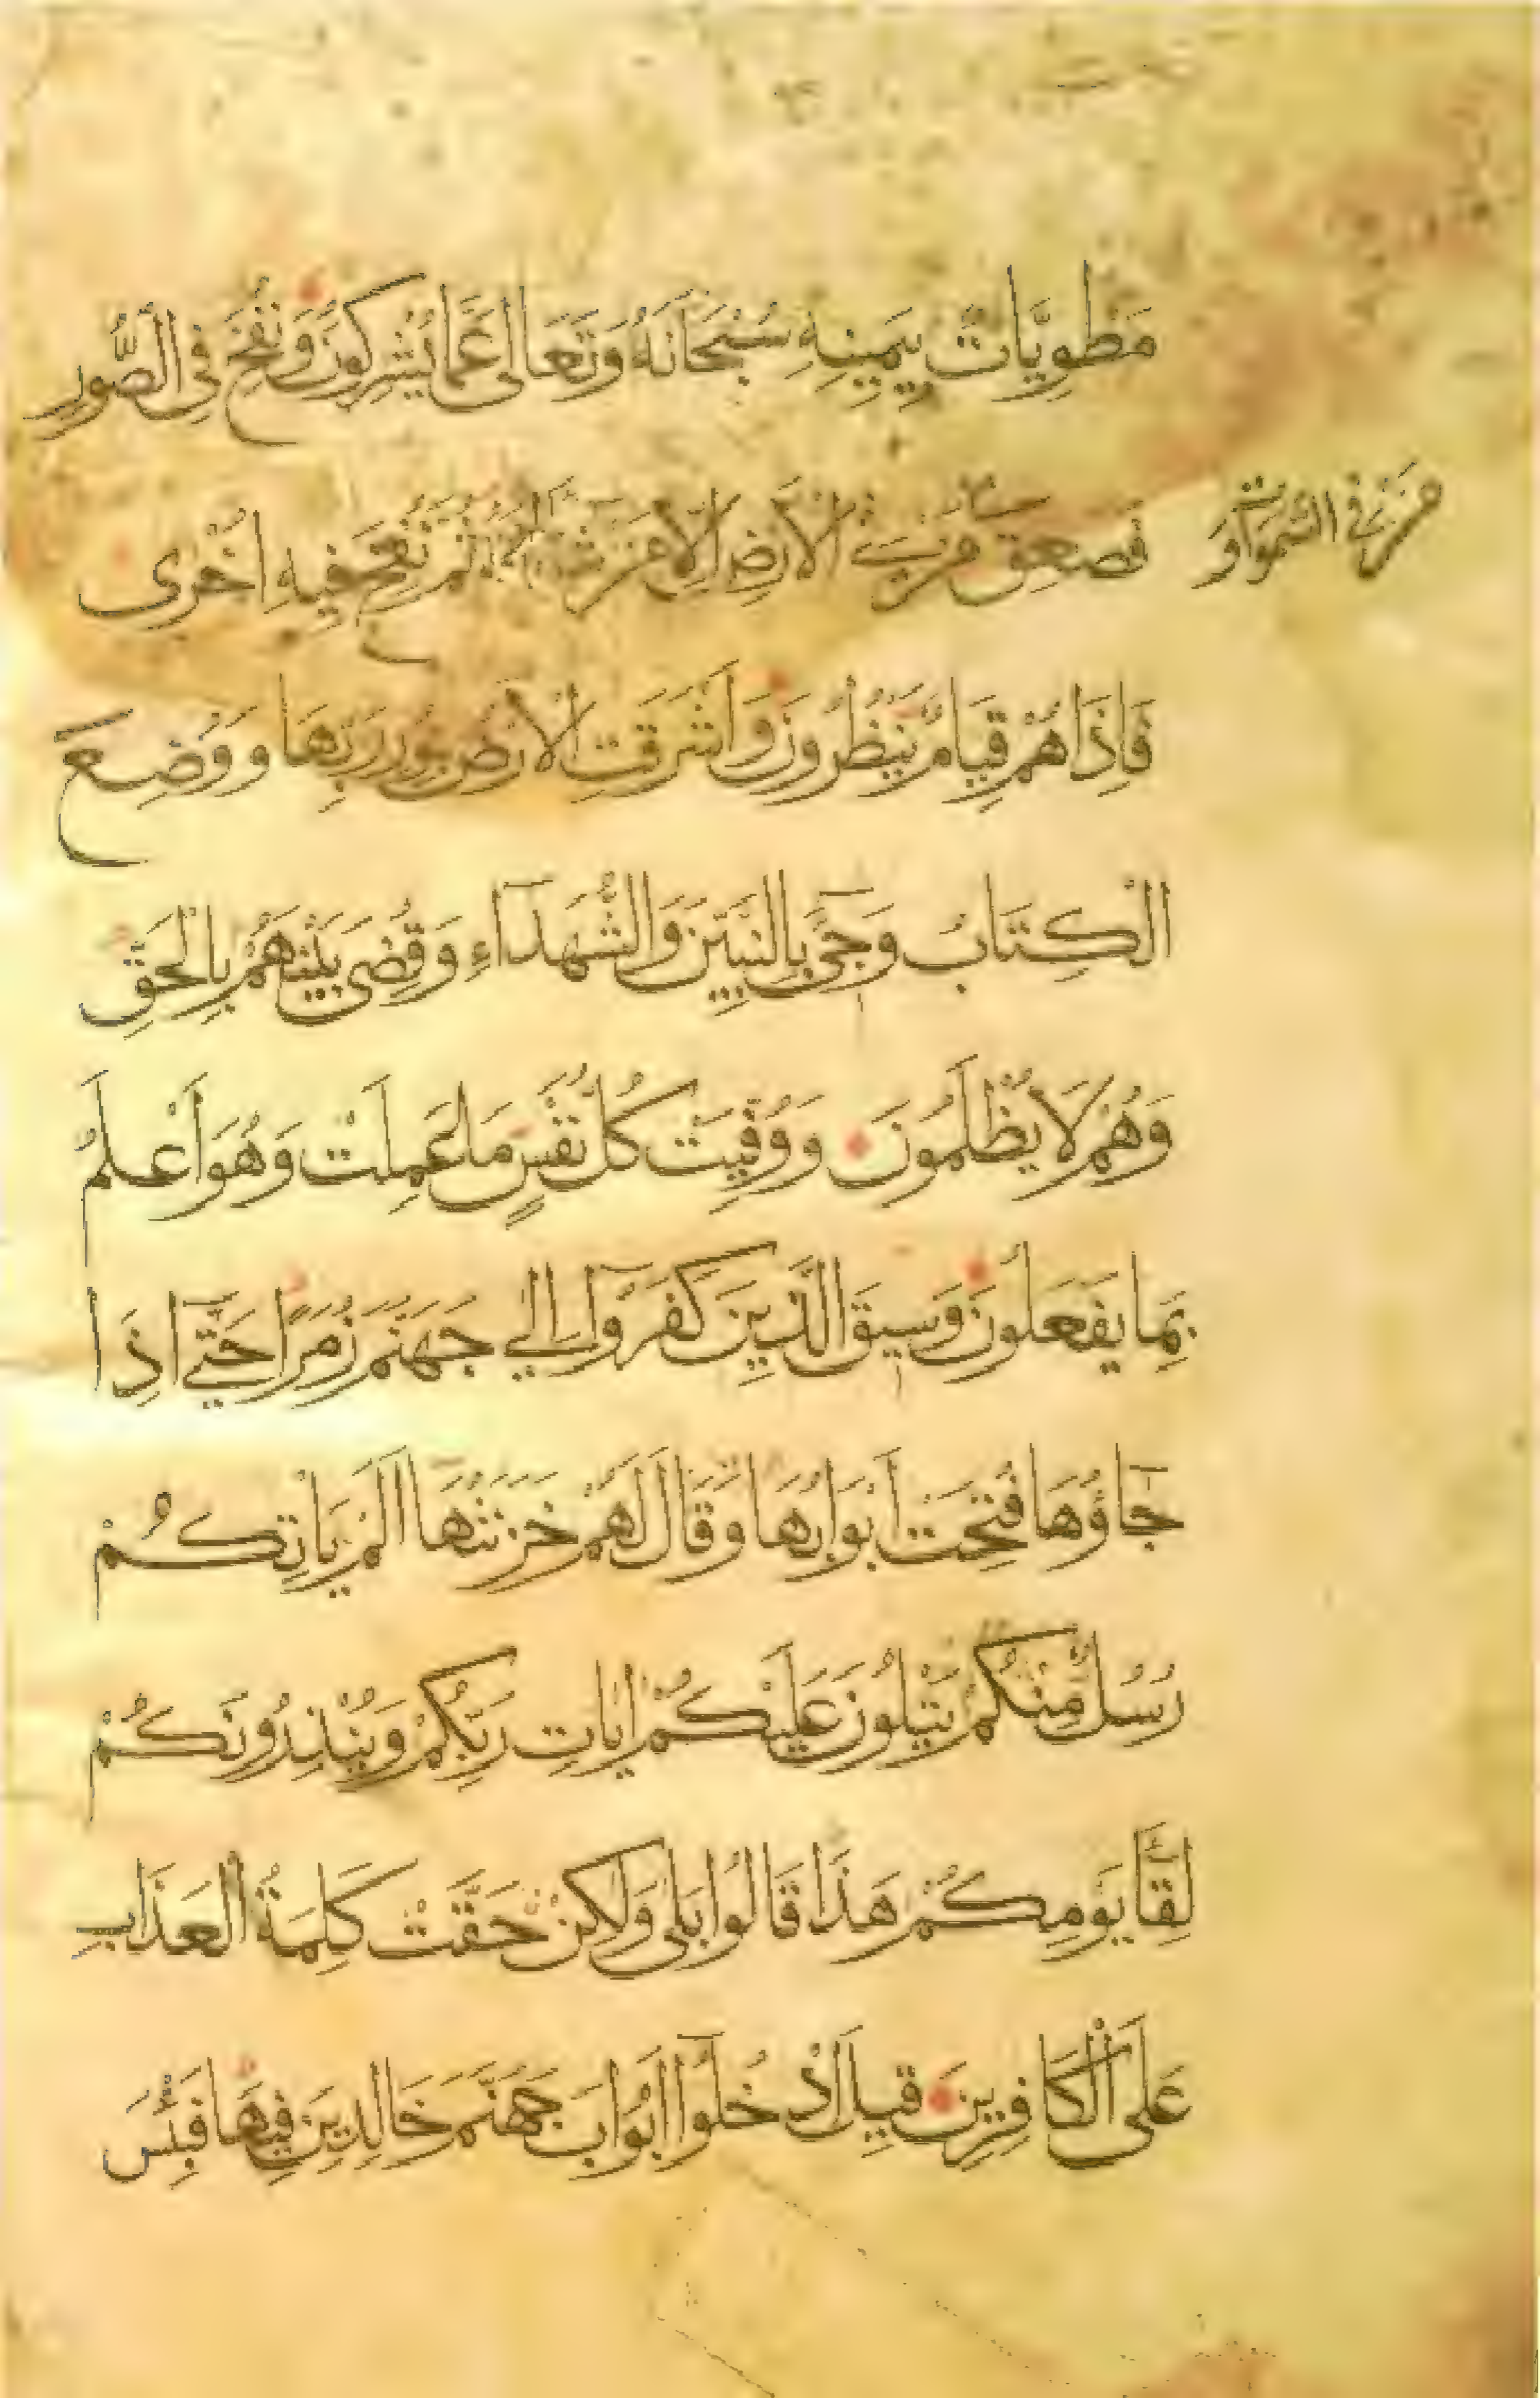 مَطْوِيَّاتٌ بِيَمِينِهِ سُبْحَانَهُ وَتَعَالَى عَمَّا يُشْرِكُونَ وَنُفِخَ فِي الصُّورِ
فَصَعِقَ مَنْ فِي الْاَرْضِ اِلَّا مَنْ شَاءَ اللهُ ثُمَّ نُفِخَ فِيهِ اُخْرَى
مَنْ فِي السَّمَوَاتِ وَ
فَاِذَا هُمْ قِيَامٌ يَنْظُرُونَ وَاَشْرَقَتِ الْاَرْضُ بِنُورِ رَبِّهَا وَوُضِعَ
الْكِتَابُ وَجِيءَ بِالنَّبِيِّنَ وَالشُّهَدَآءِ وَقُضِيَ بَيْنَهُمْ بِالْحَقِّ
وَهُمْ لَا يُظْلَمُونَ وَوُفِّيَتْ كُلُّ نَفْسٍ مَا عَمِلَتْ وَهُوَ اَعْلَمُ
بِمَا يَفْعَلُونَ وَسِيقَ الَّذِينَ كَفَرُوٓا اِلٰي جَهَنَّمَ زُمَرًا حَتَّىٓ اِذَا
جَآؤُهَا فُتِحَتْ اَبْوَابُهَا وَقَالَ لَهُمْ خَزَنَتُهَا اَلَمْ يَاْتِكُمْ
رُسُلٌ مِنْكُمْ يَتْلُونَ عَلَيْكُمْ اٰيَاتِ رَبِّكُمْ وَيُنْذِرُونَكُمْ
لِقَآءَ يَوْمِكُمْ هَذَا قَالُوا بَلَى وَلَكِنْ حَقَّتْ كَلِمَةُ الْعَذَابِ
عَلَى الْكَافِرِينَ قِيلَ ادْخُلُوٓا اَبْوَابَ جَهَنَّمَ خَالِدِينَ فِيهَا فَبِئْسَ